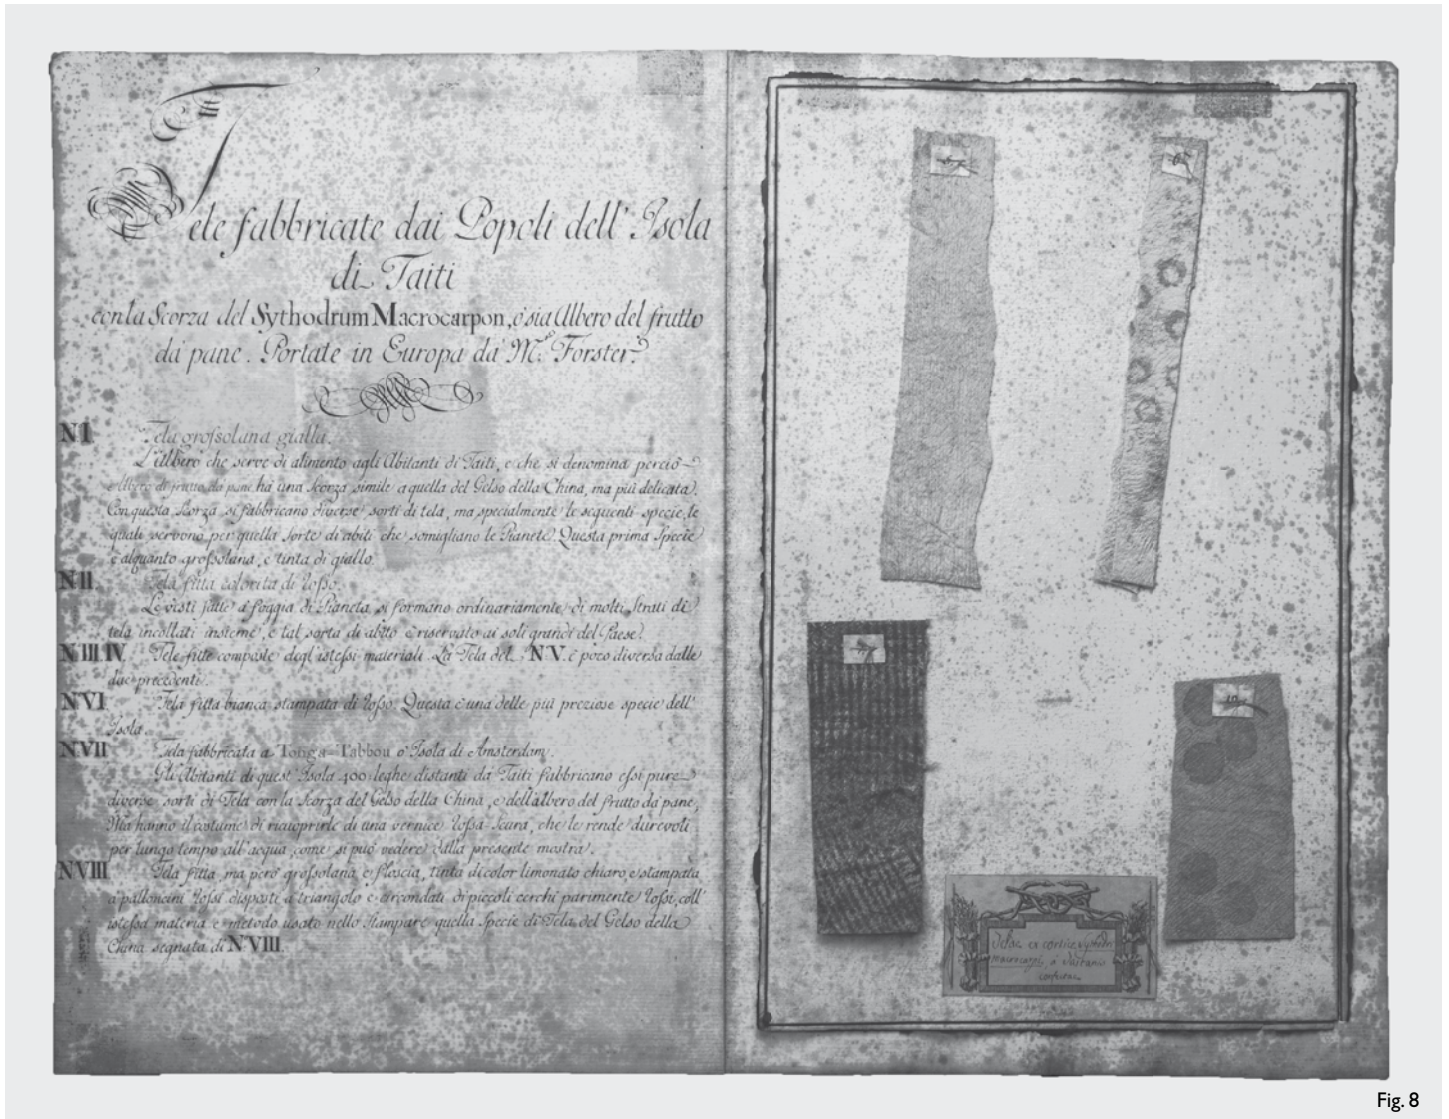 Tele fabbricate dai Popoli dell' Isola
di Taiti
con la Scorza del Sythodrum Macrocarpon, o' sia Albero del frutto
da' pane. Portate in Europa da' M.r Forster.
N I. Tela grossolana gialla.
L'albero che serve di alimento agli Abitanti di Taiti, e che si denomina perciò
Albero di frutto da pane ha una Scorza simile a quella del Gelso della China, ma più delicata.
Con questa Scorza si fabbricano diverse sorti di tela, ma specialmente le seguenti specie, le
quali servono per quella sorte di abiti che somigliano le Pianete. Questa prima Specie
è alquanto grossolana, e tinta di giallo.
N II. Tela fitta colorita di rosso.
Le vesti fatte a foggia di Pianeta si formano ordinariamente di molti Strati di
tela incollati insieme, e tal sorta di abito è riservato ai soli grandi del Paese.
N III. IV. Tele fitte composte degl'istessi materiali. La Tela del N V. è poco diversa dalle
due precedenti.
N VI. Tela fitta bianca stampata di rosso. Questa è una delle più preziose specie dell'
Isola.
N VII. Tela fabbricata a Tonga-Tabbou o' Isola di Amsterdam.
Gli Abitanti di quest' Isola 400 leghe distanti da Taiti fabbricano essi pure
diverse sorti di Tela con la Scorza del Gelso della China, e dell'albero del frutto da' pane,
Ma hanno il costume di ricuoprirle di una vernice rossa-scura, che le rende durevoli
per lungo tempo all'acqua come si può vedere dalla presente mostra.
N VIII. Tela fitta ma però grossolana e floscia, tinta di color limonato chiaro, e stampata
a palloncini rossi disposti a triangolo e circondati di piccoli cerchi parimente rossi, coll'
istessa materia e metodo usato nello stampare quella Specie di Tela del Gelso della
China segnata di N VIII.
Telae ex cortice
macrocarpi, a Taitanis
confectae
Fig. 8